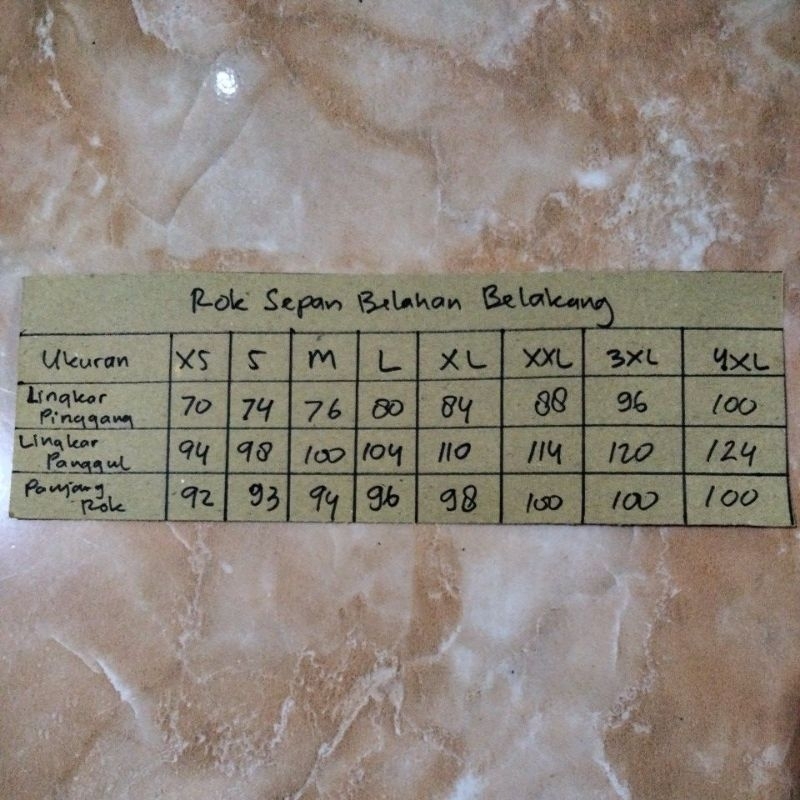 Rok Sepan Belahan Belakang
Ukuran XS S M L XL XXL 3XL 4XL
Lingkar Pinggang 70 74 76 80 84 88 96 100
Lingkar Panggul 94 98 100 104 110 114 120 124
Panjang Rok 92 93 94 96 98 100 100 100